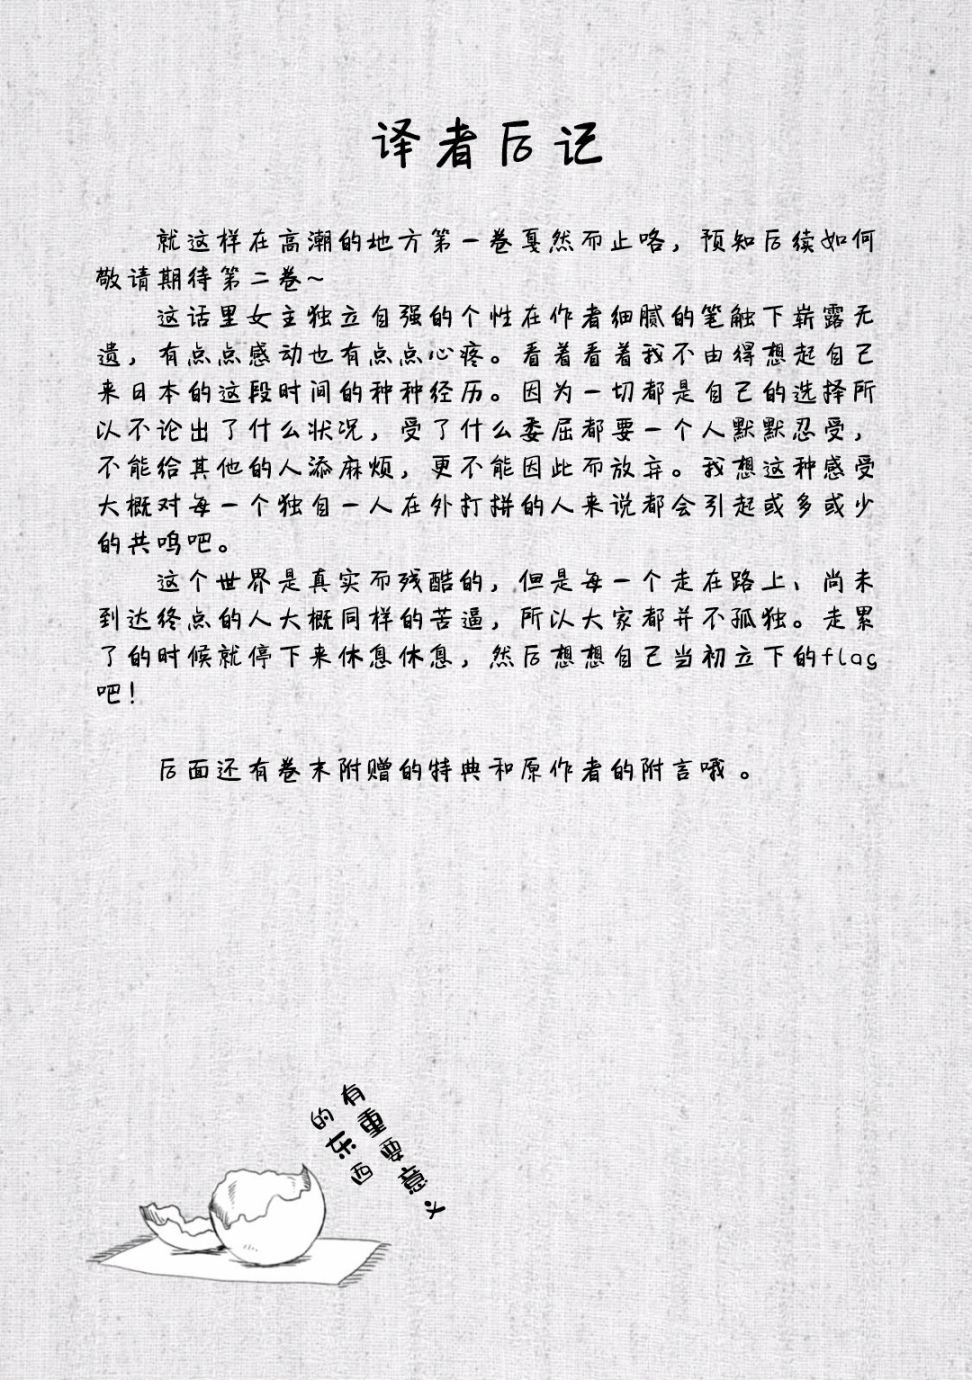 译者后记
就这样在高潮的地方第一卷戛然而止咯，预知后续如何
敬请期待第二卷~
这话里女主独立自强的个性在作者细腻的笔触下崭露无
遗，有点点感动也有点点心疼。看着看着我不由得想起自己
来日本的这段时间的种种经历。因为一切都是自己的选择所
以不论出了什么状况，受了什么委屈都要一个人默默忍受，
不能给其他的人添麻烦，更不能因此而放弃。我想这种感受
大概对每一个独自一人在外打拼的人来说都会引起或多或少
的共鸣吧。
这个世界是真实而残酷的，但是每一个走在路上、尚未
到达终点的人大概同样的苦逼，所以大家都并不孤独。走累
了的时候就停下来休息休息，然后想想自己当初立下的flag
吧！
后面还有卷末附赠的特典和原作者的附言哦。
有重要意义
的东西